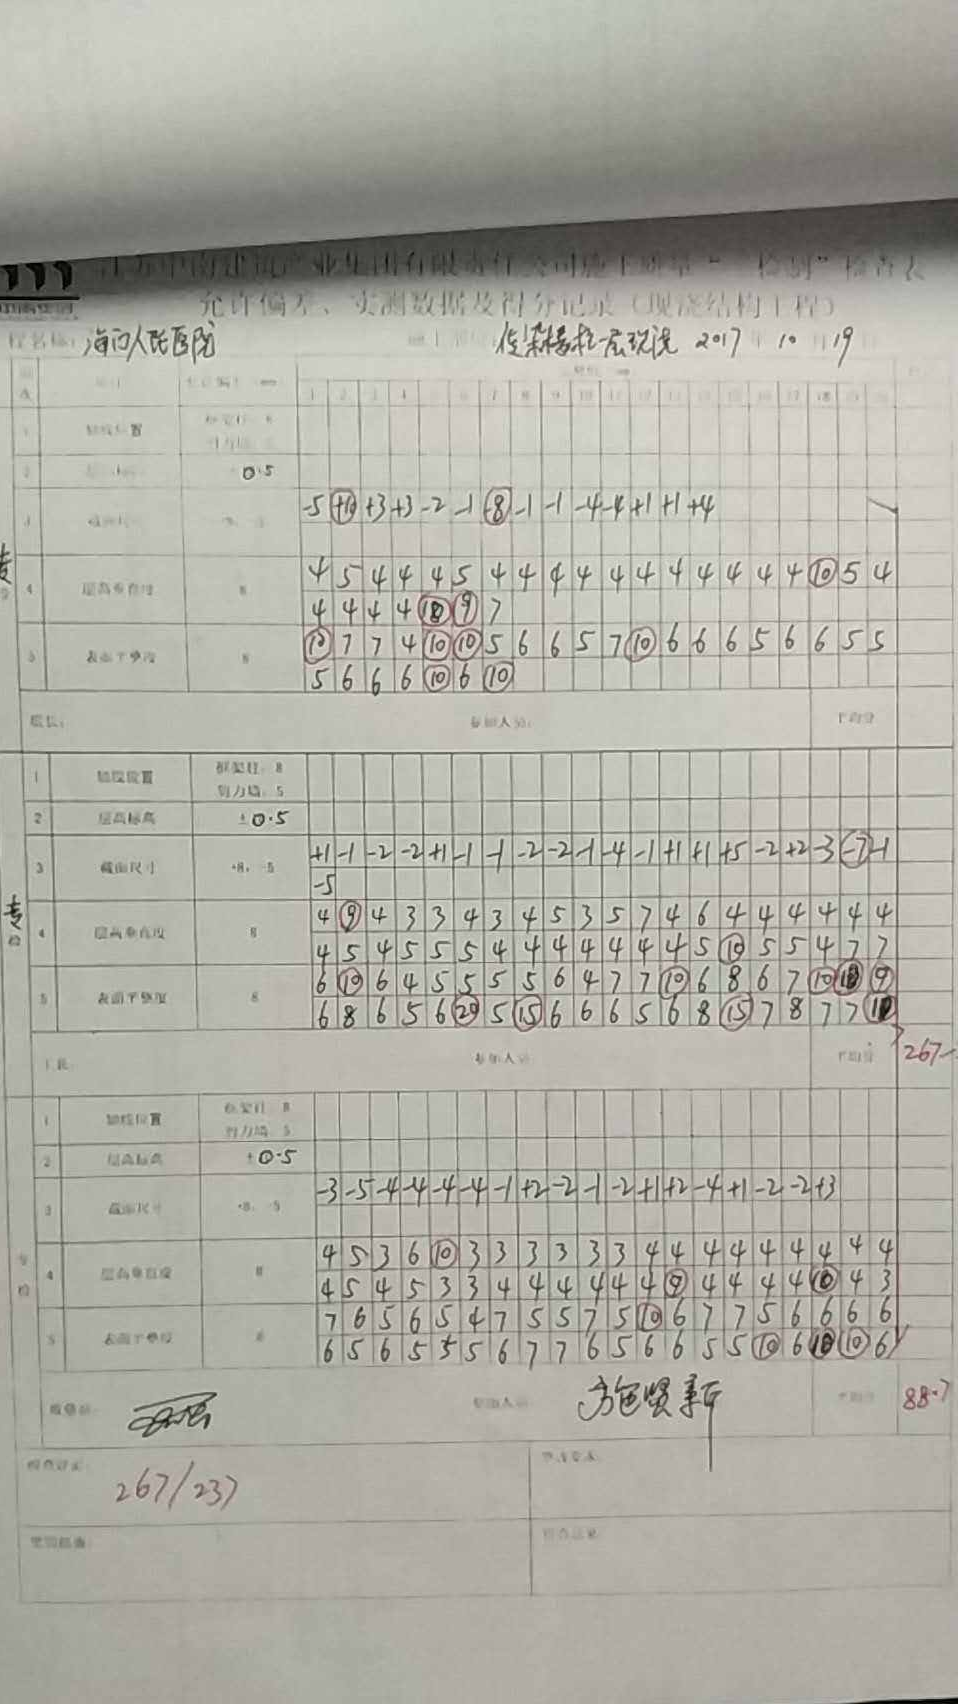 江苏中南建筑产业集团有限责任公司施工质量“三检制”检查表
允许偏差、实测数据及得分记录（现浇结构工程）
海门人民医院 2017年10月19
1 2 3 4 7 8 9 10 17 18
1 轴线位置
0.5
-5 +10 +3 +3 -2 -1 -8 -1 -1 -4 -4 +1 +1 +4
4 层高垂直度 8 4 5 4 4 4 5 4 4 4 4 4 4 4 4 4 4 4 10 5 4
4 4 4 4 10 9 7
5 表面平整度 8 10 7 7 4 10 10 5 6 6 5 7 10 6 6 6 5 6 6 5 5
5 6 6 6 10 6 10
组长： 参加人员： 平均分
1 轴线位置 框架柱：8
剪力墙：5
2 层高标高 ±0.5
专检
3 截面尺寸 +8，-5 +1 -1 -2 -2 +1 -1 -1 -2 -2 -1 -4 -1 +1 +1 +5 -2 +2 -3 -7 -1
-5
4 层高垂直度 8 4 9 4 3 3 4 3 4 5 3 5 7 4 6 4 4 4 4 4 4
4 5 4 5 5 5 4 4 4 4 4 4 4 5 10 5 5 4 7 7
5 表面平整度 8 6 10 6 4 5 5 5 5 6 4 7 7 10 6 8 6 7 10 10 9
6 8 6 5 6 20 5 15 6 6 6 5 6 8 15 7 8 7 7 10
工长： 参加人员： 平均分 267
1 轴线位置 框架柱：8
剪力墙：5
2 层高标高 ±0.5
3 截面尺寸 +8，-5 -3 -5 -4 -4 -4 -4 -1 +2 -2 -1 -2 +1 +2 -4 +1 -2 -2 +3
4 层高垂直度 8 4 5 3 6 10 3 3 3 3 3 3 4 4 4 4 4 4 4 4 4
4 5 4 5 3 3 4 4 4 4 4 4 9 4 4 4 4 10 4 3
5 表面平整度 8 7 6 5 6 5 4 7 5 5 7 5 10 6 7 7 5 6 6 6 6
6 5 6 5 5 5 6 7 7 6 5 6 6 5 5 10 6 10 10 6
参加人员： 施贤新 平均分 88.7
267/237